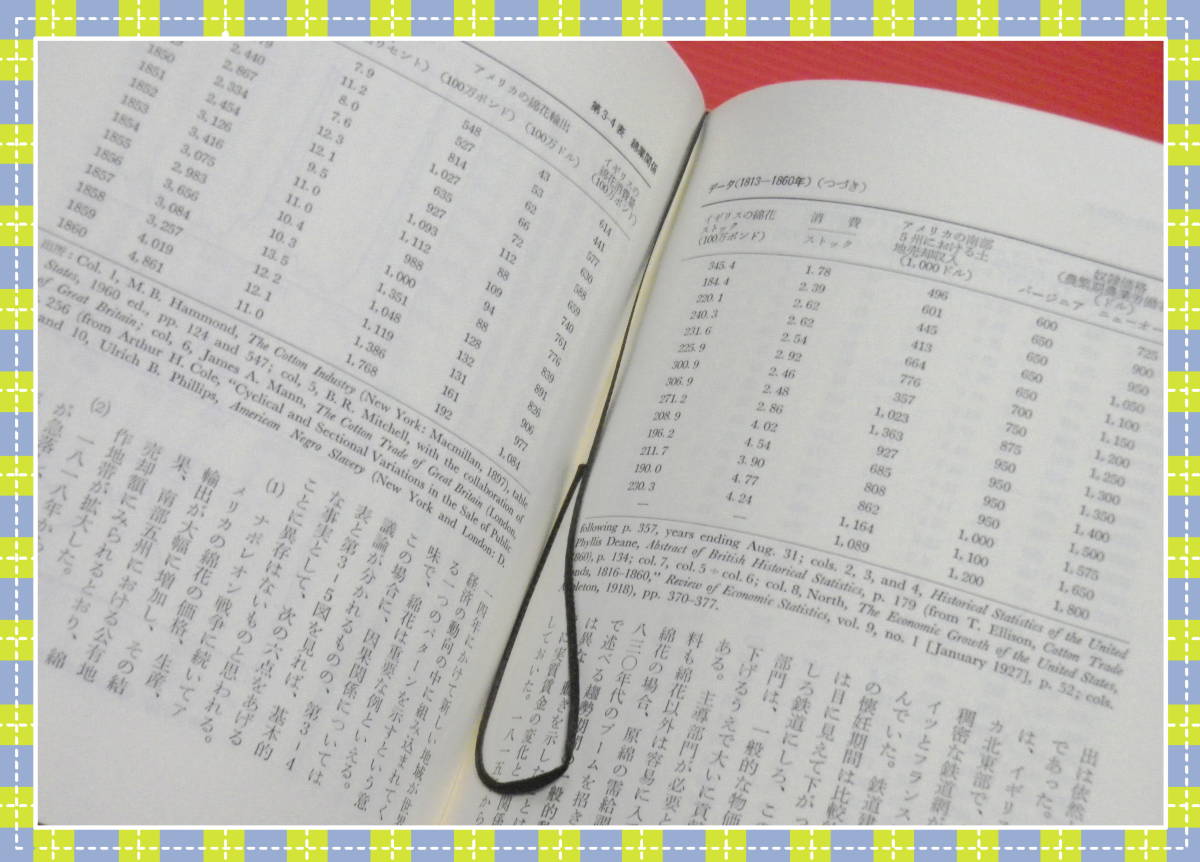 第3-4表 綿業関係
アメリカの綿花輸出
(100万ポンド) (100万ドル)
イギリスの
綿花消費量
(100万ポンド)
7.9 548 43 614
11.2 527 53 441
2,867 8.0 814 62 577
7.6 1,027 66 630
1850 2,334 12.3 635 72 588
1851 2,454 12.1 927 112 659
1852 3,126 9.5 1,093 88 740
1853 3,416 11.0 1,112 109 761
1854 3,075 11.0 988 94 776
1855 2,983 10.4 1,000 88 839
1856 3,656 10.3 1,351 128 891
1857 3,084 13.5 1,048 132 826
1858 3,257 12.2 1,119 131 906
1859 4,019 12.1 1,386 161 977
1860 4,861 11.0 1,768 192 1,084
出所: Col. 1, M.B. Hammond, The Cotton Industry (New York: Macmillan, 1897), table
and 547; col, 5, B.R. Mitchell, with the collaboration of
States, 1960 ed., pp. 124
of Great Britain; col, 6, James A. Mann, The Cotton Trade of Great Britain (London,
256 (from Arthur H. Cole, "Cyclical and Sectional Variations in the Sale of Public
and 10, Ulrich B. Phillips, American Negro Slavery (New York and London: D.
一四年にかけて新しい地域が世界
経済の動向の中に組み込まれてく
る一つのパターンを示すという意
味で、綿花は重要な例といえる。
この場合に、因果関係については
議論が分かれるものの、第3-4
表と第3-5図を見れば、基本的
な事実として、次の六点をあげる
ことに異存はないものと思われる。
(1) ナポレオン戦争に続いてア
メリカの綿花の価格、生産、
輸出が大幅に増加し、その結
果、南部五州における公有地
売却額にみられるとおり、綿
作地帯が拡大した。
(2) 一八一八年から
が急落
データ(1813—1860年)(つづき)
イギリスの綿花
ストック
(100万ポンド)
消費
ストック
アメリカの南部
5州における土
地売却収入
(1,000ドル)
奴隷価格
(ドル)
バージニア ニューオー
345.4 1.78 496 600 725
184.4 2.39 601 650 900
220.1 2.62 445 650 950
240.3 2.62 413 650 1,050
231.6 2.54 664 650 1,100
225.9 2.92 776 700 1,150
300.9 2.46 357 750 1,200
306.9 2.48 1,023 875 1,250
271.2 2.86 1,363 950 1,300
208.9 4.02 927 950 1,350
196.2 4.54 685 950 1,400
211.7 3.90 808 950 1,500
190.0 4.77 862 1,000 1,575
230.3 4.24 1,164 1,100 1,650
— — 1,089 1,200 1,800
following p. 357, years ending Aug. 31; cols. 2, 3, and 4, Historical Statistics of the United
Phyllis Deane, Abstract of British Historical Statistics, p. 179 (from T. Ellison, Cotton Trade
1860), p. 134; col. 7, col. 5 ÷ col. 6; col. 8, North, The Economic Growth of the United States,
Lands, 1816–1860," Review of Economic Statistics, vol. 9, no. 1 [January 1927], p. 52; cols.
Appleton, 1918), pp. 370–377.
出は依然
であった。
は、イギリ
カ北東部で、
稠密な鉄道網
イツとフランス
んでいた。鉄道建
の懐妊期間は比較
は目に見えて下が
しろ鉄道にしろ、こ
部門は、一般的な物価
下げるうえで大いに貢
ある。主導部門が必要と
料も綿花以外は容易に入
綿花の場合、原綿の需給調
八三〇年代のブームを招き
で述べる趨勢期間の一般的
は異な
に実質賃金の変化と
しておいた。一八一五